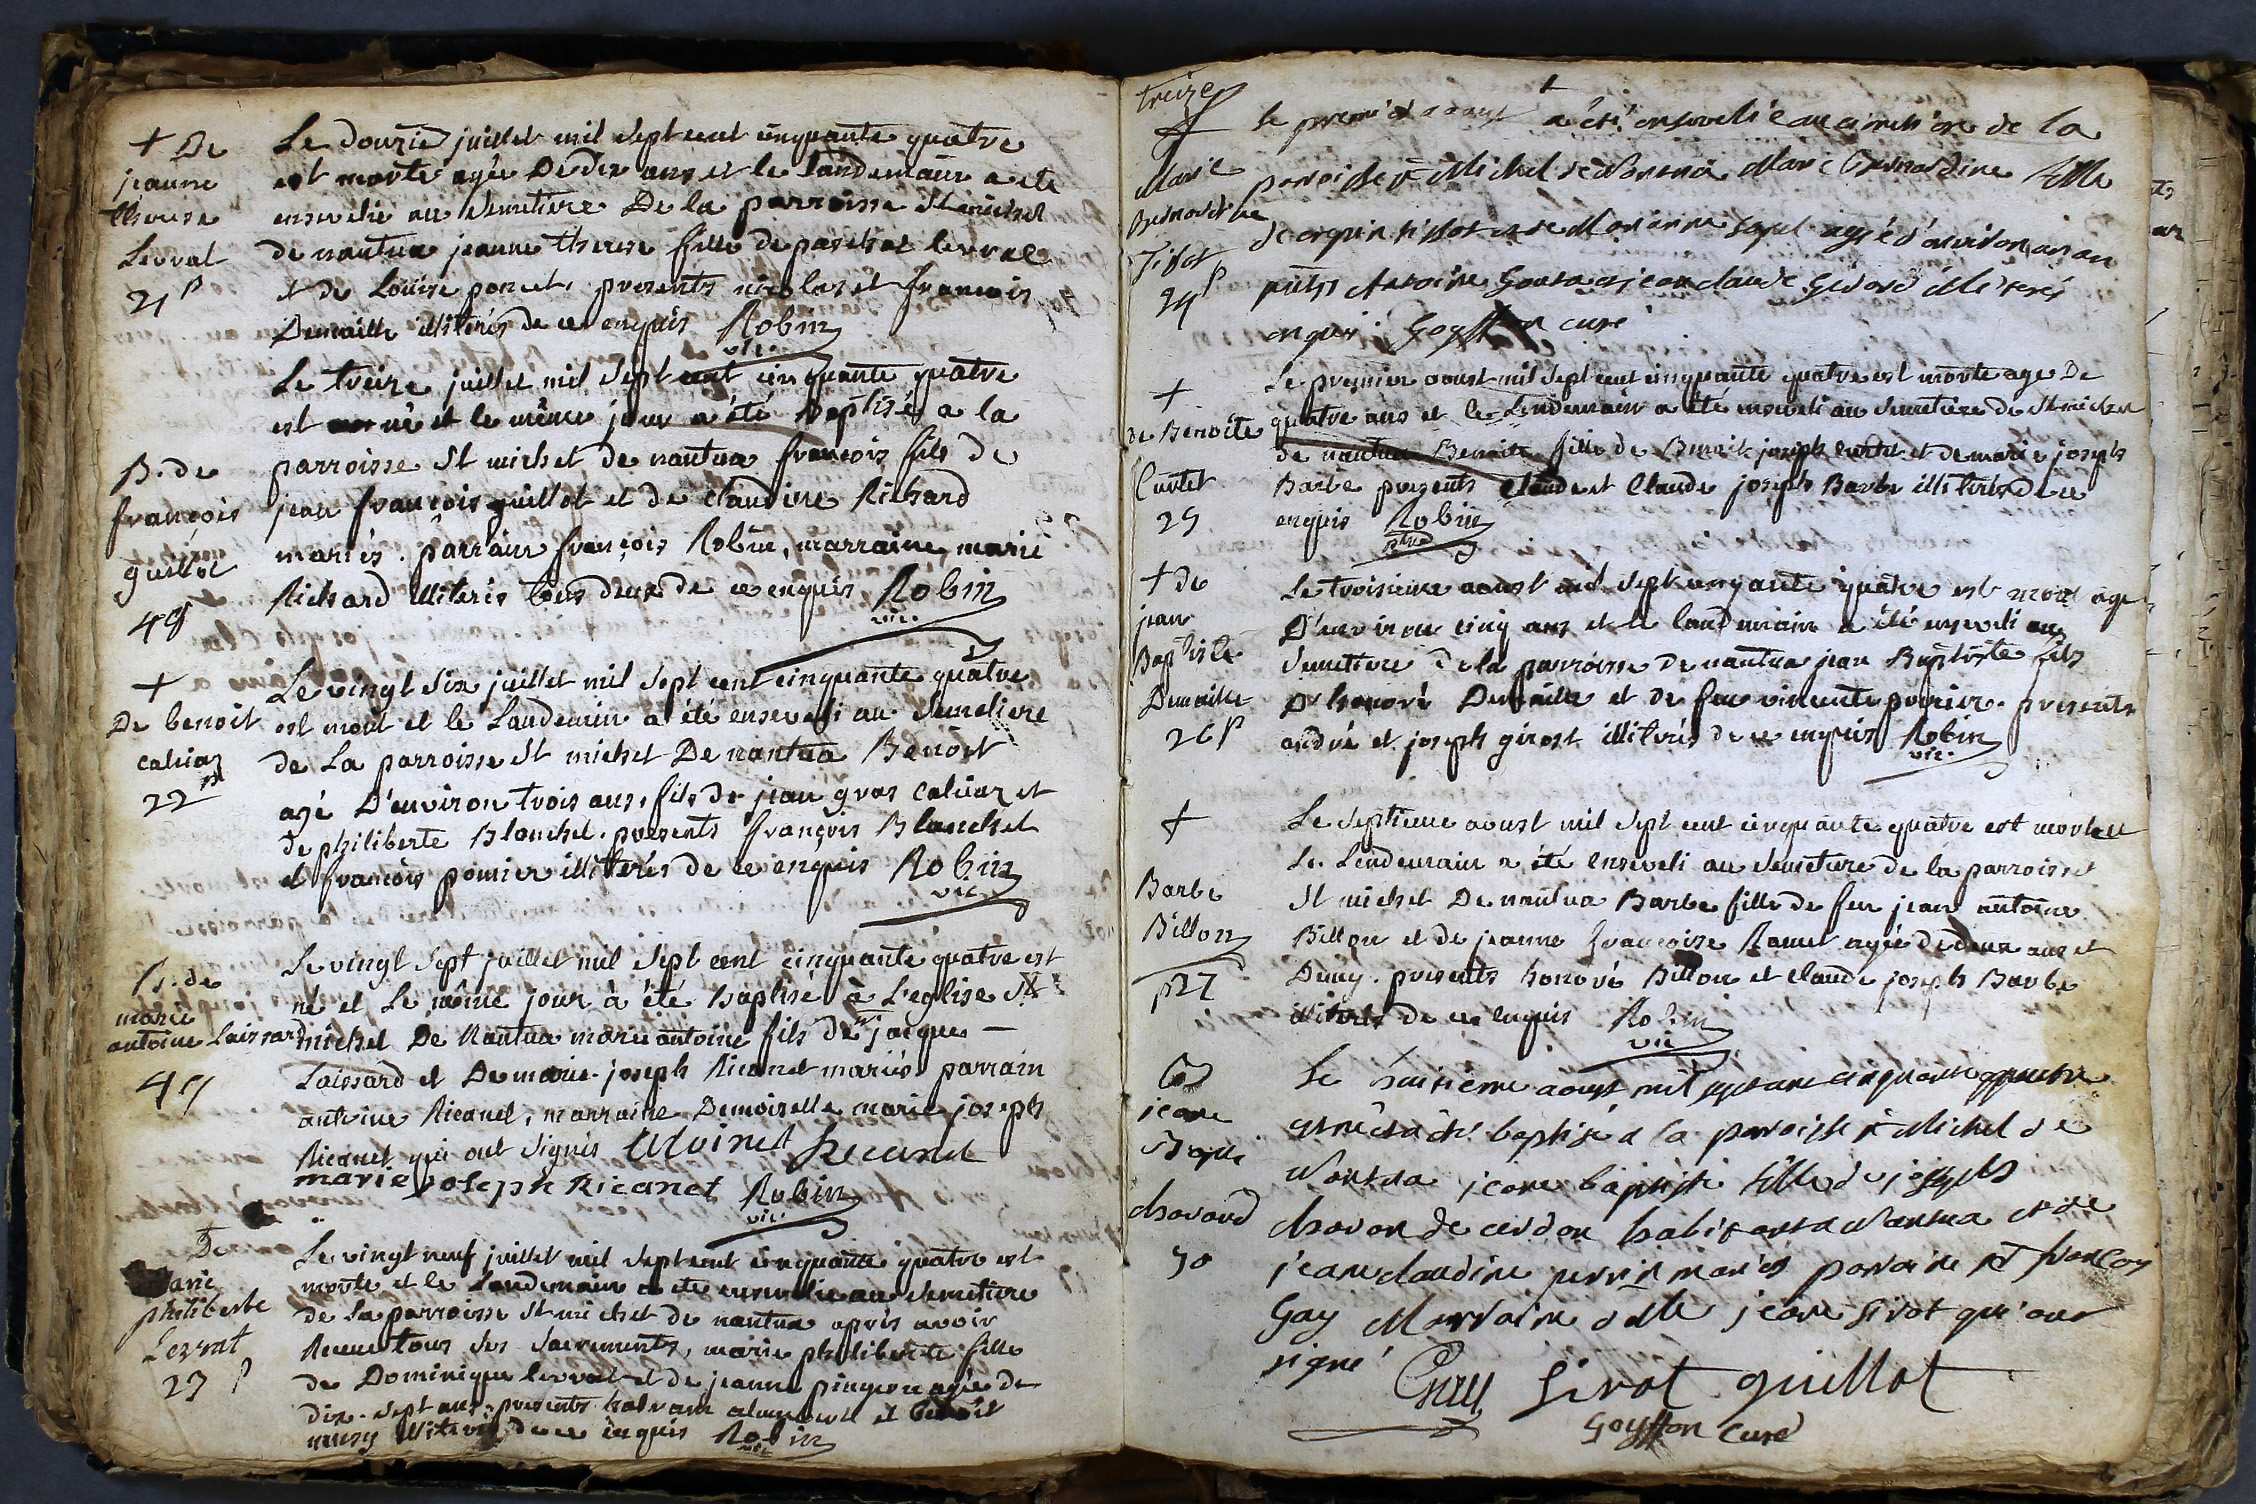 + De
jeanne
therese
Levrat
21 p
Le douzie juillet mil sept cent cinquante quatre
est morte agée De dix ans et le landemain a ete
ensevelie au Semetiere De la parroisse St michel
de nantua jeanne therese fille de paschal levrat
et de Louise poncet. presents nicolas et francois
Demaille illiterés de ce enquis Robin
vic.
B. de
françois
guillot
48
Le treize juillet mil sept cent cinquante quatre
est né et le même jour a été baptisé a la
parroisse St michel de nantua françois fils de
jean françois guillot et de claudine Richard
mariés. parrain françois Robin, marraine marie
Richard illiterés tous deux de ce enquis Robin
vic.
+
De benoit
caliaz
22
Le vingt six juillet mil sept cent cinquante quatre
est mort et le landemin a été enseveli au Semetiere
de La parroisse St michel De nantua Benoit
agé D'environ trois ans, fils de jean gras caliaz et
de philiberte Blanchet. presents françois Blanchet
et françois poirier illiterés de ce enquis Robin
vic
B. de
marie
antoine Laissard
49
Le vingt sept juillet mil sept cent cinquante quatre est
né et Le même jour à été baptisé à L'eglise St
michel De Nantua marie antoine fils de jacque
Laissard et De marie joseph Ricanet mariés. parrain
antoine Ricanet, marraine Demoiselle marie joseph
Ricanet qui ont signés Ricanet
marie joseph Ricanet Robin
vic.
De
marie
philiberte
Levrat
23 p
Le vingt neuf juillet mil sept cent cinquante quatre est
morte et le landemain a ete ensevelie au Semetiere
de La parroisse St michel de nantua après avoir
Receu tous ses Sacrements, marie philiberte fille
de Dominique levrat et de jeanne pingeon agée de
dix-sept ans. presents et benoit
illiterés de ce enquis Robin
vic
treize
+
Marie
Bernardine
Tissot
24 p
le premier aoust a été ensevelie au cimetiere de la
paroisse st Michel de Nantua Marie Bernardine fille
de tissot et de Marianne agée d'environ un an
pnts Antoine et jean claude Girard illiterés
enquis. Goyffon curé
+
de Benoite
Curtet
25
Le premier aoust mil sept cent cinquante quatre est morte age De
quatre ans et le Lendemain a été enseveli au Semetiere de St michel
de nantua Benoite fille de Benoit joseph curtet et de marie joseph
Barbe presents Claude et Claude joseph Barbe illiterés de ce
enquis Robin
+ de
jean
Baptiste
Demaille
26 p
Le troisieme aoust mil sept cinquante quatre est mort agé
D'environ cinq ans et le landemain a été enseveli au
Semetiere de la parroisse de nantua jean Baptiste fils
D'honoré Demaille et de feue vincente poirier. présents
andré et joseph girost illiterés de ce enquis Robin
vic.
+
Barbe
Billon
p 27
Le septieme aoust mil sept cent cinquante quatre est morte et
Le Lendemain a été enseveli au Semetiere de la parroisse
St michel De nantua Barbe fille de feu jean antoine
Billon et de jeanne françoise Ramet agée de deux ans et
Demy. presents honoré Billon et Claude joseph Barbe
illiterés de ce enquis Robin
vic
jeane
Bapte
chavand
50
Le huitieme aoust mil sept cent cinquante quatre
est née et a été baptisé a la paroisse st Michel de
Nantua jeane baptiste fille de joseph
chavan de cerdon habitant a Nantua et de
jeane claudine perrin mariés parrain sr francois
Gay Marraine delle jeane sirot qui ont
signé Gay Sirot guillot
Goyffon curé